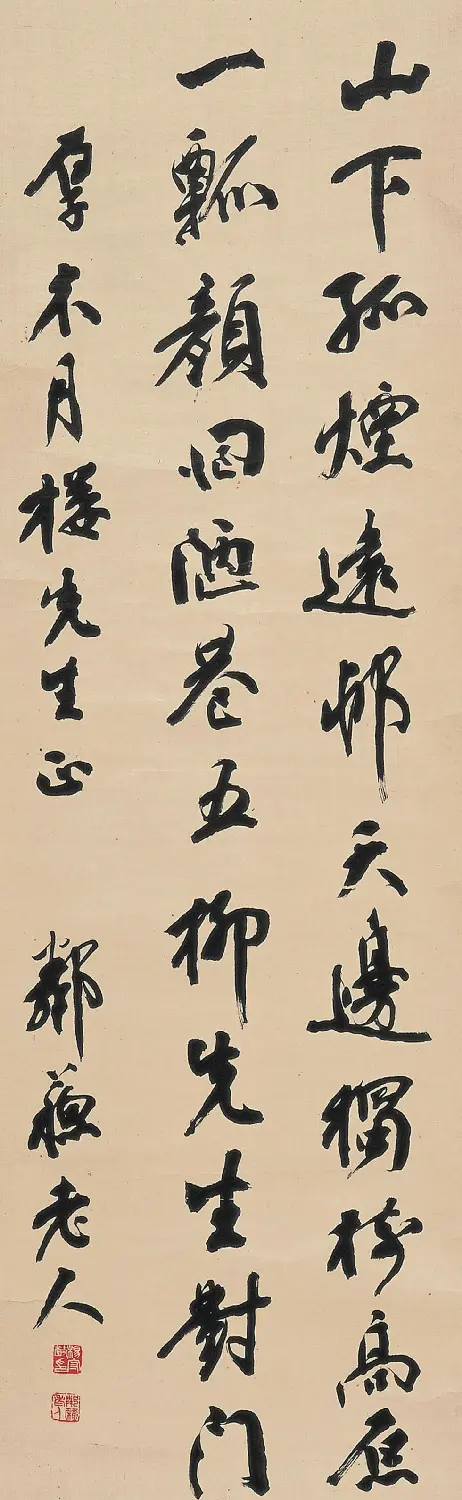 山下孤煙遠邨天邊獨樹高原
一瓢顏回陋巷五柳先生對門
厚木月樓先生正 鄰蘇老人